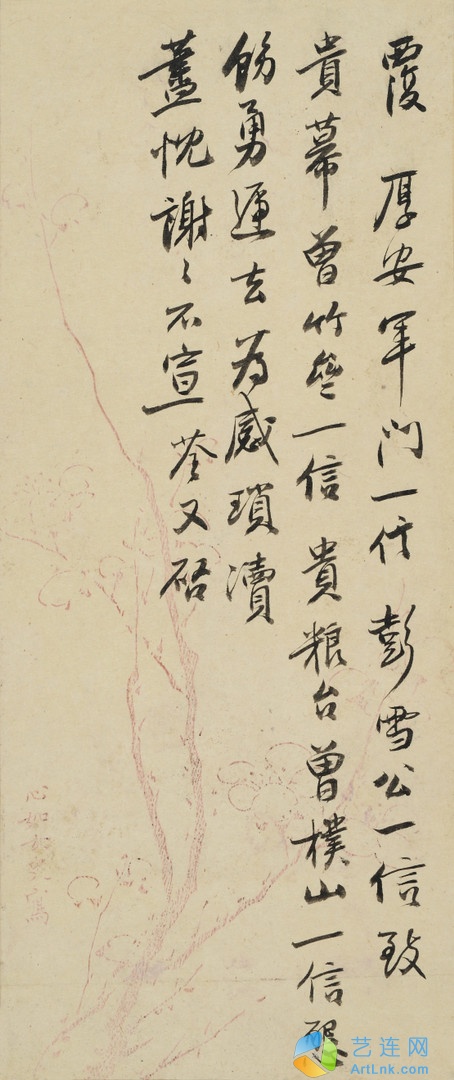 覆 厚安军門一信 彭雪公一信致
貴幕曾竹一信 貴粮台曾樸山一信懇
飭勇遞去為感瑣瀆
藎忱謝〻不宣 荃又啓
心如寫
艺连网
ArtLnk.com